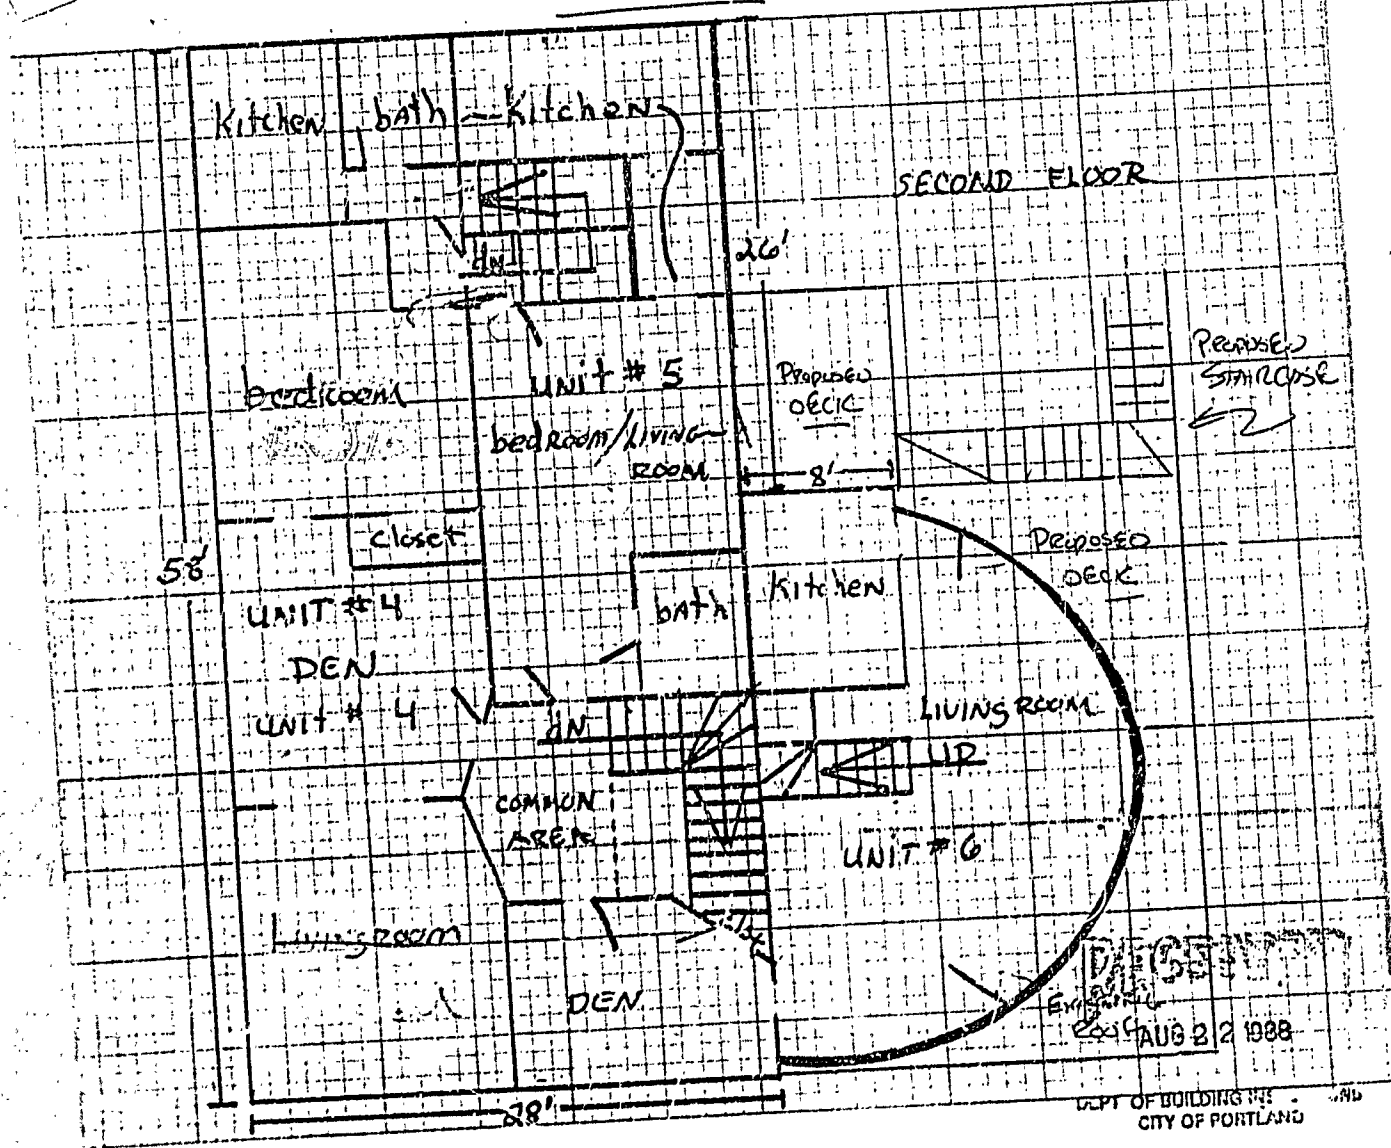 Kitchen
bath
Kitchen
SECOND FLOOR
dN
26'
bedroom
UNIT # 5
bedROOM/LIVING
ROOM
PROPOSED
DECK
PROPOSED
STAIRCASE
8'
closet
58'
UNIT # 4
DEN
UNIT # 4
bath
Kitchen
PROPOSED
DECK
dN
LIVING ROOM
UP
COMMON
AREA
UNIT # 6
Living room
DEN
EXISTING
ROOF
AUG 22 1988
28'
DEPT OF BUILDING
CITY OF PORTLAND